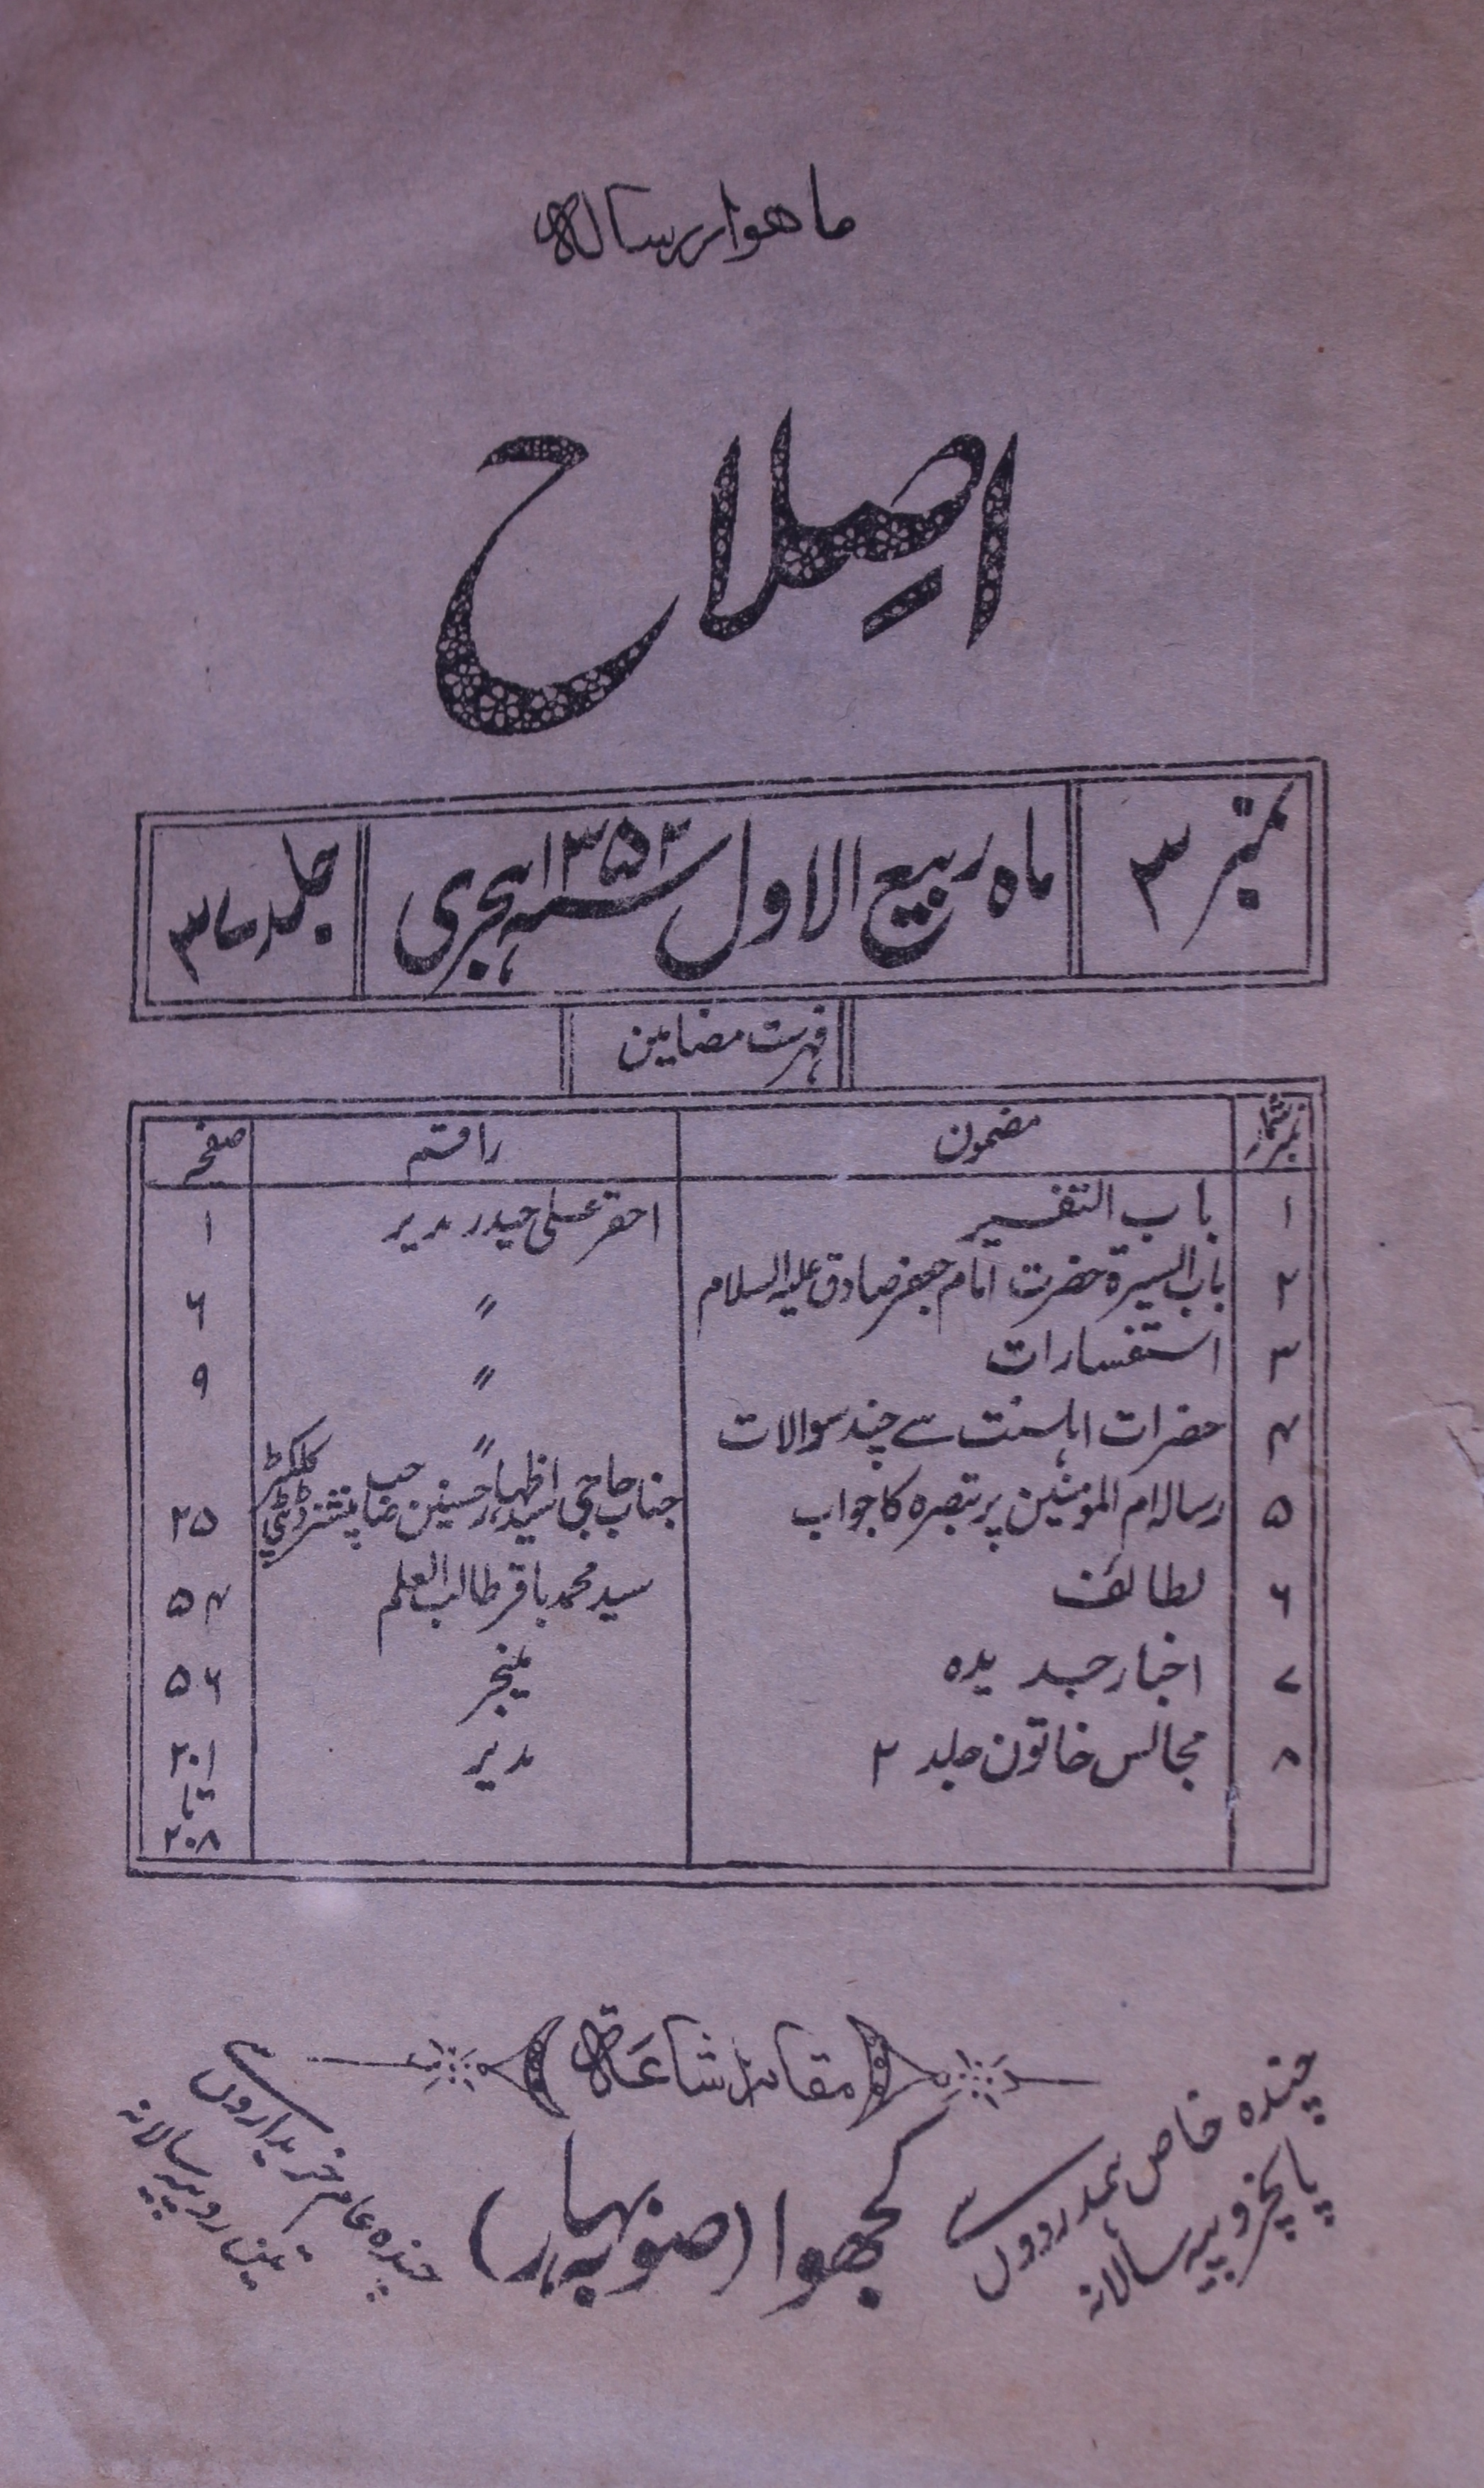 ماهوار رساله
اصِلاح
نمبر ۳ ماہ ربیع الاول سنہ ۱۳۵۲ ہجری جلد ۳۷
فہرست مضامین
نمبر شمار مضمون راقم صفحہ
۱ باب التفسیر احقر علی حیدر مدیر ۱
۲ باب السیرۃ حضرت امام جعفر صادق علیہ السلام 〃 ۶
۳ استفسارات 〃 ۹
۴ حضرات اہلسنت سے چند سوالات 〃
۵ رسالہ ام المومنین پر تبصرہ کا جواب جناب حاجی سید اظہار حسنین صاحب پنشنر ڈپٹی کلکٹر ۲۵
۶ لطائف سید محمد باقر طالب العلم ۵۴
۷ اخبار جدیدہ منیجر ۵۶
۸ مجالس خاتون جلد ۲ مدیر ۲۰۱ تا ۲۰۸
مقام اشاعۃ
چندہ خاص ہمدردوں سے
پانچروپیہ سالانہ
کجھوا (صوبہ بہار)
چندہ عام خریداروں سے
تین روپیہ سالانہ